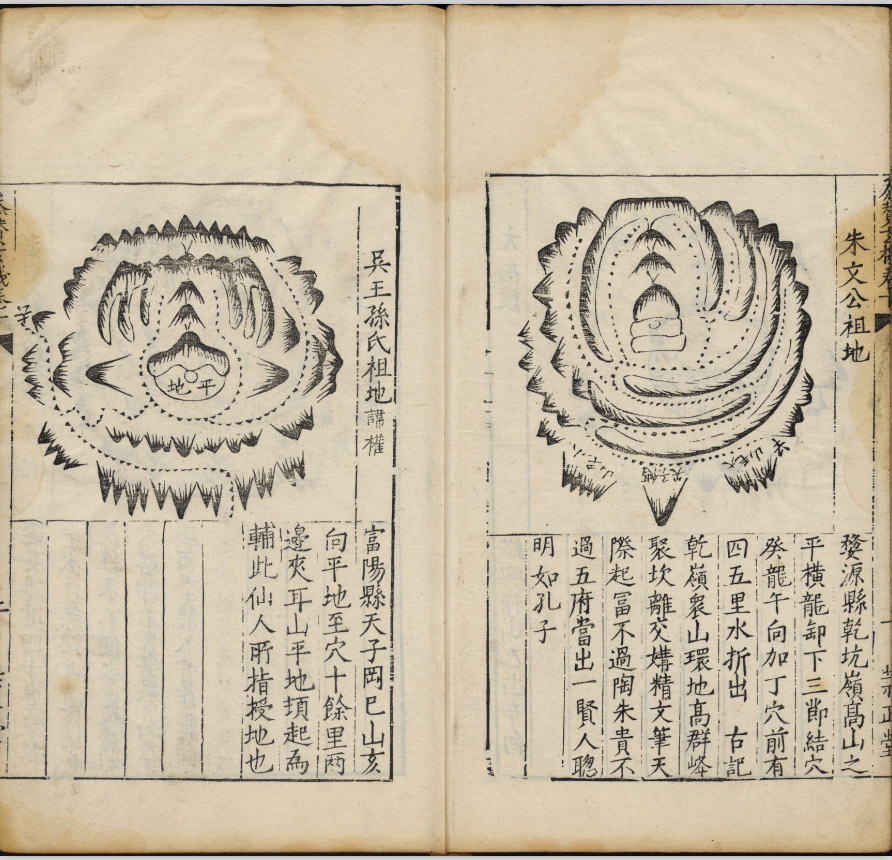 朱文公祖地
婺源縣乾坑嶺高山之
平橫龍卸下三節結穴
癸龍午向加丁穴前有
四五里水折出 古記
乾嶺衆山環地高群峰
聚坎離交媾精文筆天
際起冨不過陶朱貴不
過五府當出一賢人聰
明如孔子
吳王孫氏祖地諱權
平地
富陽縣天子岡巳山亥
向平地至穴十餘里兩
邊夾耳山平地頊起為
輔此仙人所指授地也